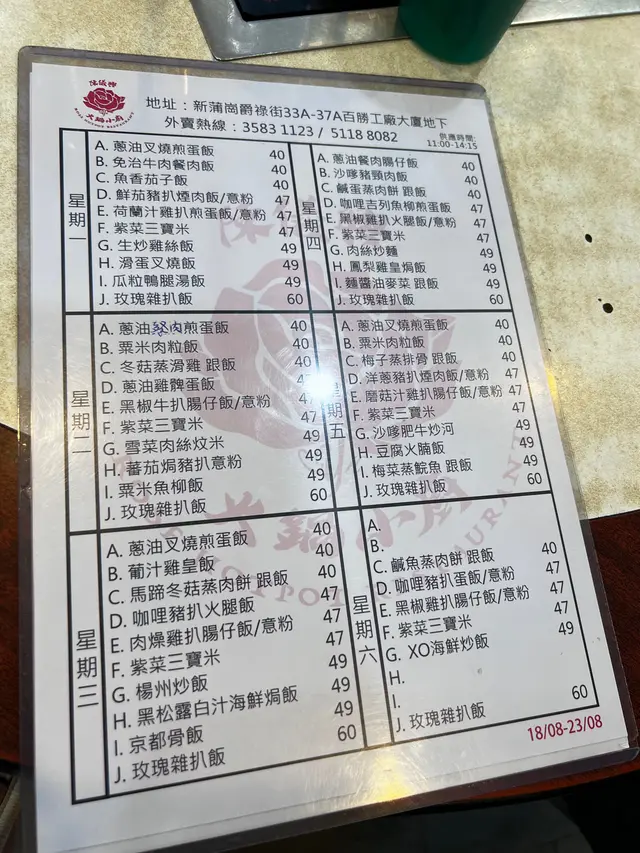 地址：新蒲崗爵祿街33A-37A百勝工廠大廈地下
外賣熱線：3583 1123 / 5118 8082
供應時間:
11:00-14:15
火鍋小廚
星期一
A. 蔥油叉燒煎蛋飯 40
B. 免治牛肉餐肉飯 40
C. 魚香茄子飯 40
D. 鮮茄豬扒煙肉飯/意粉 47
E. 荷蘭汁雞扒煎蛋飯/意粉 47
F. 紫菜三寶米 47
G. 生炒雞絲飯 49
H. 滑蛋叉燒飯 49
I. 瓜粒鴨腿湯飯 49
J. 玫瑰雜扒飯 60
星期四
A. 蔥油餐肉腸仔飯 40
B. 沙嗲豬頸肉飯 40
C. 鹹蛋蒸肉餅 跟飯 40
D. 咖哩吉列魚柳煎蛋飯 47
E. 黑椒雞扒火腿飯/意粉 47
F. 紫菜三寶米 47
G. 肉絲炒麵 49
H. 鳳梨雞皇焗飯 49
I. 麵醬油麥菜 跟飯 49
J. 玫瑰雜扒飯 60
星期二
A. 蔥油餐肉煎蛋飯 40
B. 粟米肉粒飯 40
C. 冬菇蒸滑雞 跟飯 40
D. 蔥油雞髀蛋飯 47
E. 黑椒牛扒腸仔飯/意粉 47
F. 紫菜三寶米 47
G. 雪菜肉絲炆米 49
H. 蕃茄焗豬扒意粉 49
I. 粟米魚柳飯 49
J. 玫瑰雜扒飯 60
星期五
A. 蔥油叉燒煎蛋飯 40
B. 粟米肉粒飯 40
C. 梅子蒸排骨 跟飯 40
D. 洋蔥豬扒煙肉飯/意粉 47
E. 蘑菇汁雞扒腸仔飯/意粉 47
F. 紫菜三寶米 47
G. 沙嗲肥牛炒河 49
H. 豆腐火腩飯 49
I. 梅菜蒸鯇魚 跟飯 49
J. 玫瑰雜扒飯 60
星期三
A. 蔥油叉燒煎蛋飯 40
B. 葡汁雞皇飯 40
C. 馬蹄冬菇蒸肉餅 跟飯 40
D. 咖哩豬扒火腿飯 47
E. 肉燥雞扒腸仔飯/意粉 47
F. 紫菜三寶米 47
G. 楊州炒飯 49
H. 黑松露白汁海鮮焗飯 49
I. 京都骨飯 49
J. 玫瑰雜扒飯 60
星期六
A.
B.
C. 鹹魚蒸肉餅 跟飯 40
D. 咖哩豬扒蛋飯/意粉 47
E. 黑椒雞扒腸仔飯/意粉 47
F. 紫菜三寶米 47
G. XO海鮮炒飯 49
H.
I.
J. 玫瑰雜扒飯 60
18/08-23/08